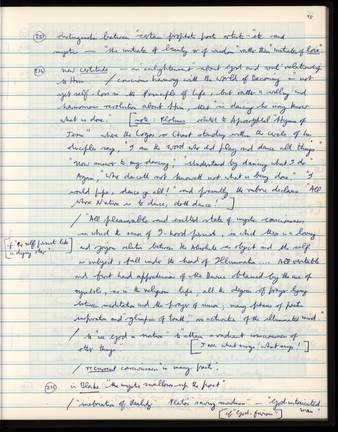 (235) distinguishes between "certain prophets poet artists" etc and
mystic — "the initiate of beauty or of wisdom" rather than "initiates of love"
(236) new certitude — an enlightenment about God and soul's relationship
to Him / conscious harmony with the world of becoming is not
yet self-loss in the Principle of life, but rather a willing and
harmonious revolution about Him, that "in dancing he may know
what is done." [note: Plotinus related to Apocryphal "Hymn of
Jesus" where the Logos or Christ standing within the circle of his
disciples says, "I am the Word who did play and dance all things"
"Now answer to my dancing", "Understand by dancing what I do"
Again, "Who danceth not knoweth not what is being done." "I
would pipe, dance ye all!" and presently the rubric declares "All
whose Nature is to dance, doth dance!"]
/ "All pleasurable and exalted states of mystic consciousness
in which the sense of I-hood persists, in which there is a loving
and joyous relation between the Absolute as object and the self
as subject, fall under the head of Illumination. ... All veritable
and first hand apprehension of the Divine obtained by the use of
symbols, as in the religious life, all the degrees of prayer lying
between meditation and the prayer of union, many phases of poetic
inspiration and glimpses of truth" are activities of the illuminated mind"
/ to "see God in nature" to attain a radiant consciousness of
other things" [I see what sings, what sings!]
/ recurrent consciousness in many poets.
(235) in Blake "the mystic swallows up the poet"
/ "inebriation of Reality" Plato's saving madness — "God intoxicated
man"
[cf God-forsaken]